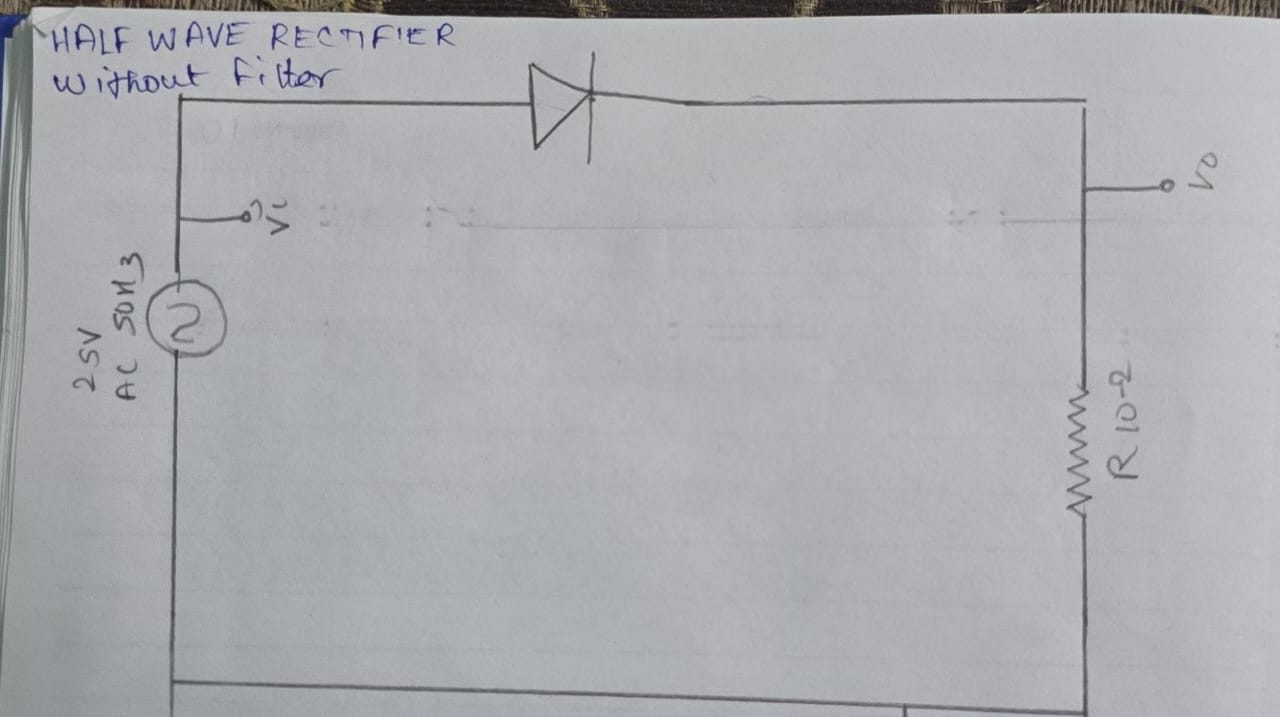 HALF WAVE RECTIFIER
Without Filter
Vi
25V
AC 50Hz
Vo
R 10-2